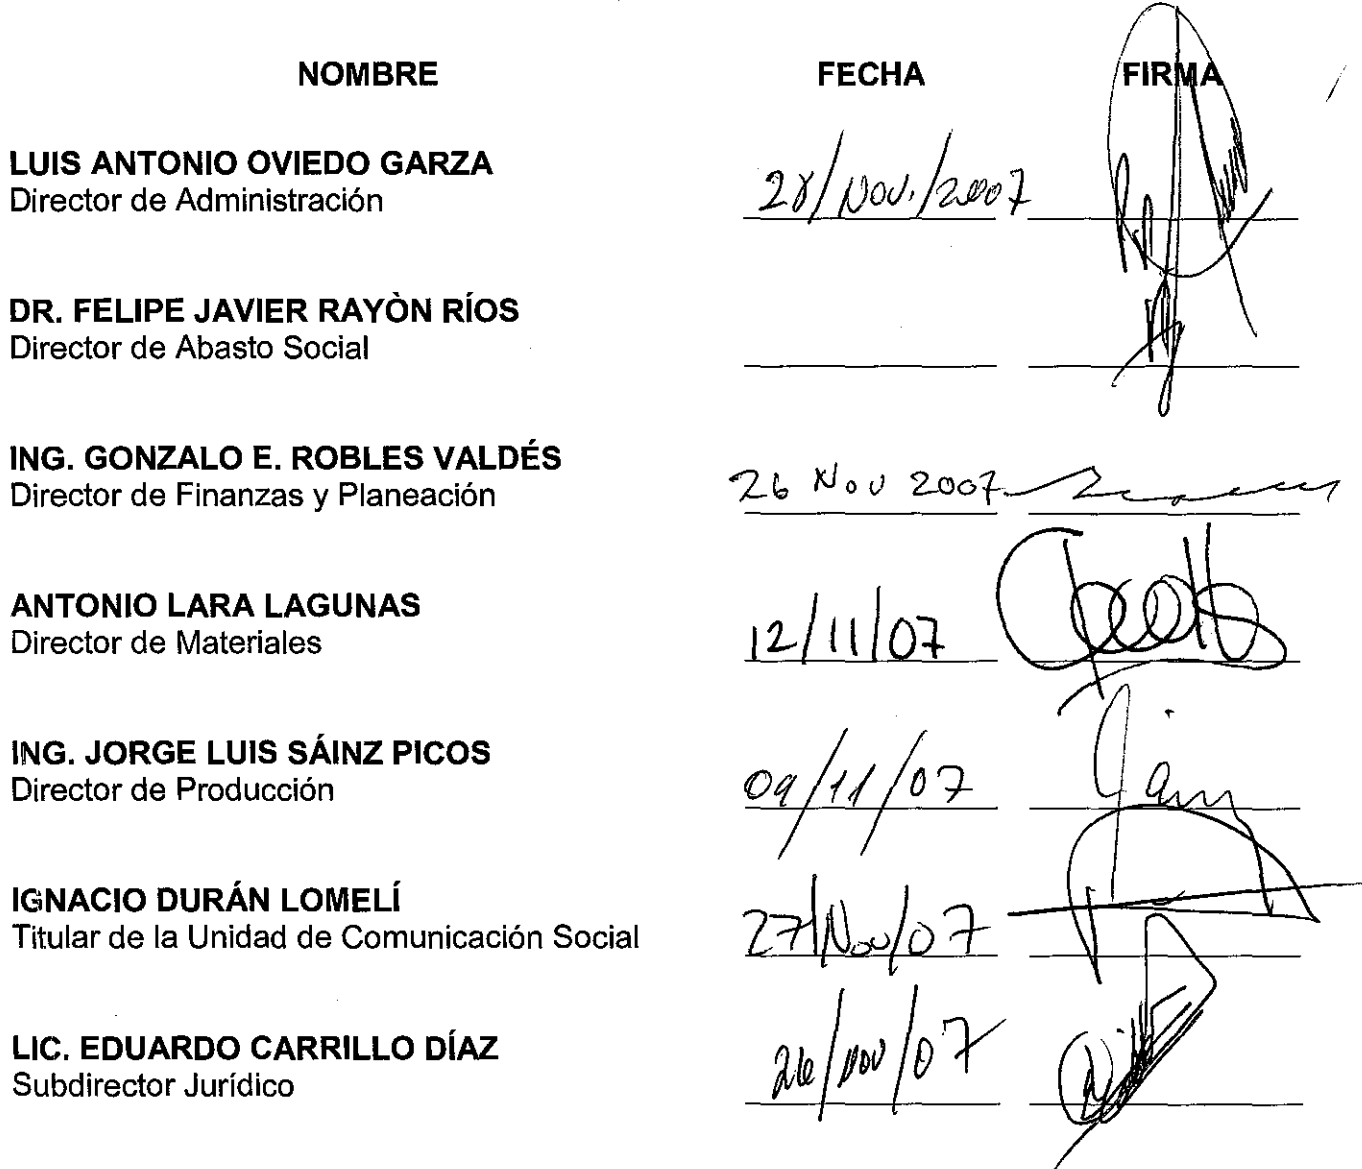 NOMBRE FECHA FIRMA
LUIS ANTONIO OVIEDO GARZA
Director de Administración 28/Nov./2007
DR. FELIPE JAVIER RAYÒN RÍOS
Director de Abasto Social
ING. GONZALO E. ROBLES VALDÉS
Director de Finanzas y Planeación 26 Nov 2007
ANTONIO LARA LAGUNAS
Director de Materiales 12/11/07
ING. JORGE LUIS SÁINZ PICOS
Director de Producción 09/11/07
IGNACIO DURÁN LOMELÍ
Titular de la Unidad de Comunicación Social 27/Nov/07
LIC. EDUARDO CARRILLO DÍAZ
Subdirector Jurídico 26/nov/07